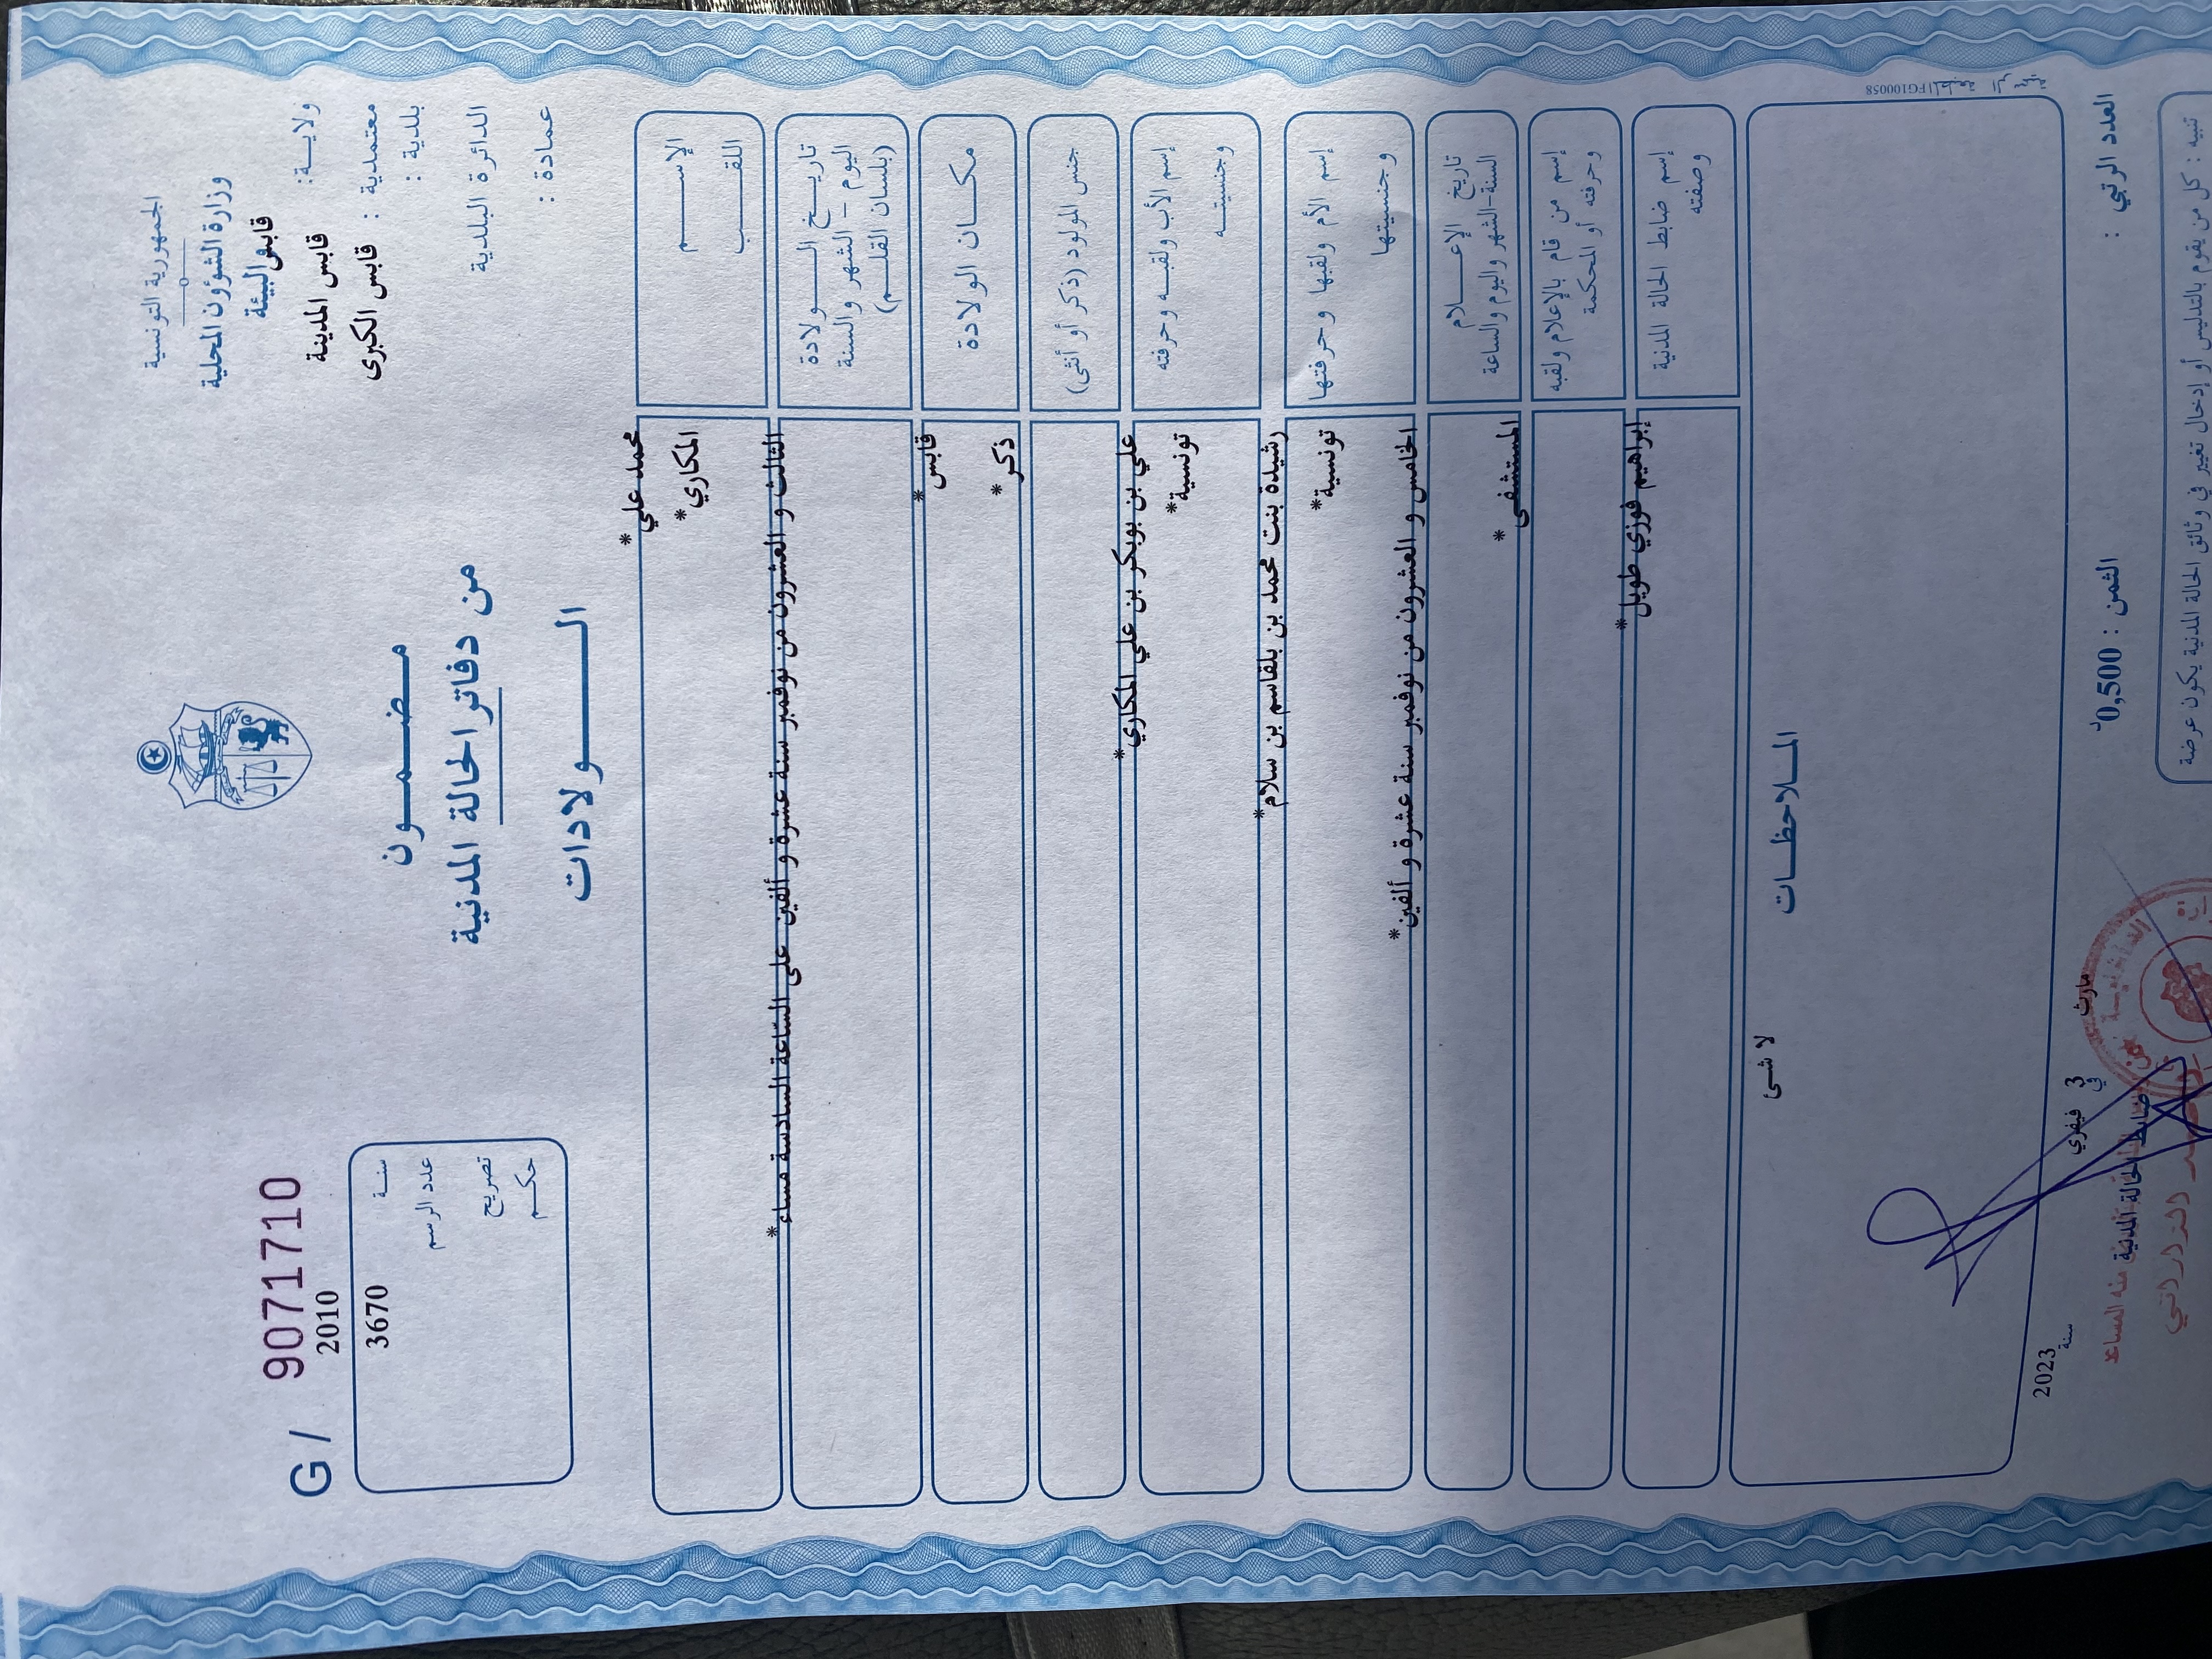 الجمهورية التونسية
وزارة الشؤون المحلية
والبيئة
قابس
ولايــة :
قابس المدينة
معتمدية :
قابس الكبرى
بلدية :
الدائرة البلدية
عمادة :
مـضـمــون
من دفاتر الحالة المدنية
الــــولادات
G / 9071710
2010
سنـة
3670
عدد الرسم
تصريح
حكـم
الإســـم
محمد علي*
اللقــب
المكاري*
تاريــخ الـــولادة
اليوم – الشهر والسنة
(بلسان القلــم)
الثالث و العشرون من نوفمبر سنة عشرة و ألفين على السّاعة السادسة مساء*
مكــان الولادة
قابس*
جنس المولود (ذكر أو أنثى)
ذكر*
إسم الأب ولقبــه وحرفته
علي بن بوبكر بن علي المكاري*
وجنسيتــه
تونسية*
إسم الأم ولقبها وحرفتها
رشيدة بنت محمد بن بلقاسم بن سلام*
وجنسيتها
تونسية*
تاريخ الإعـــلام
السنة-الشهر واليوم والساعة
الخامس و العشرون من نوفمبر سنة عشرة و ألفين*
إسم من قام بالإعلام ولقبه
وحرفته أو المحكمة
المستشفى*
إسم ضابط الحالة المدنية
وصفته
إبراهيم فوزي طويل*
المــلاحظــات
لا شئ
1FG100058
العدد الرتبي :
الثمن : 0,500د
مارث
في
3 فيفري
سنة
2023
ضابط الحالة المدنية
تنبيه : كل من يقوم بالتدليس أو إدخال تغيير في وثائق الحالة المدنية يكون عرضة